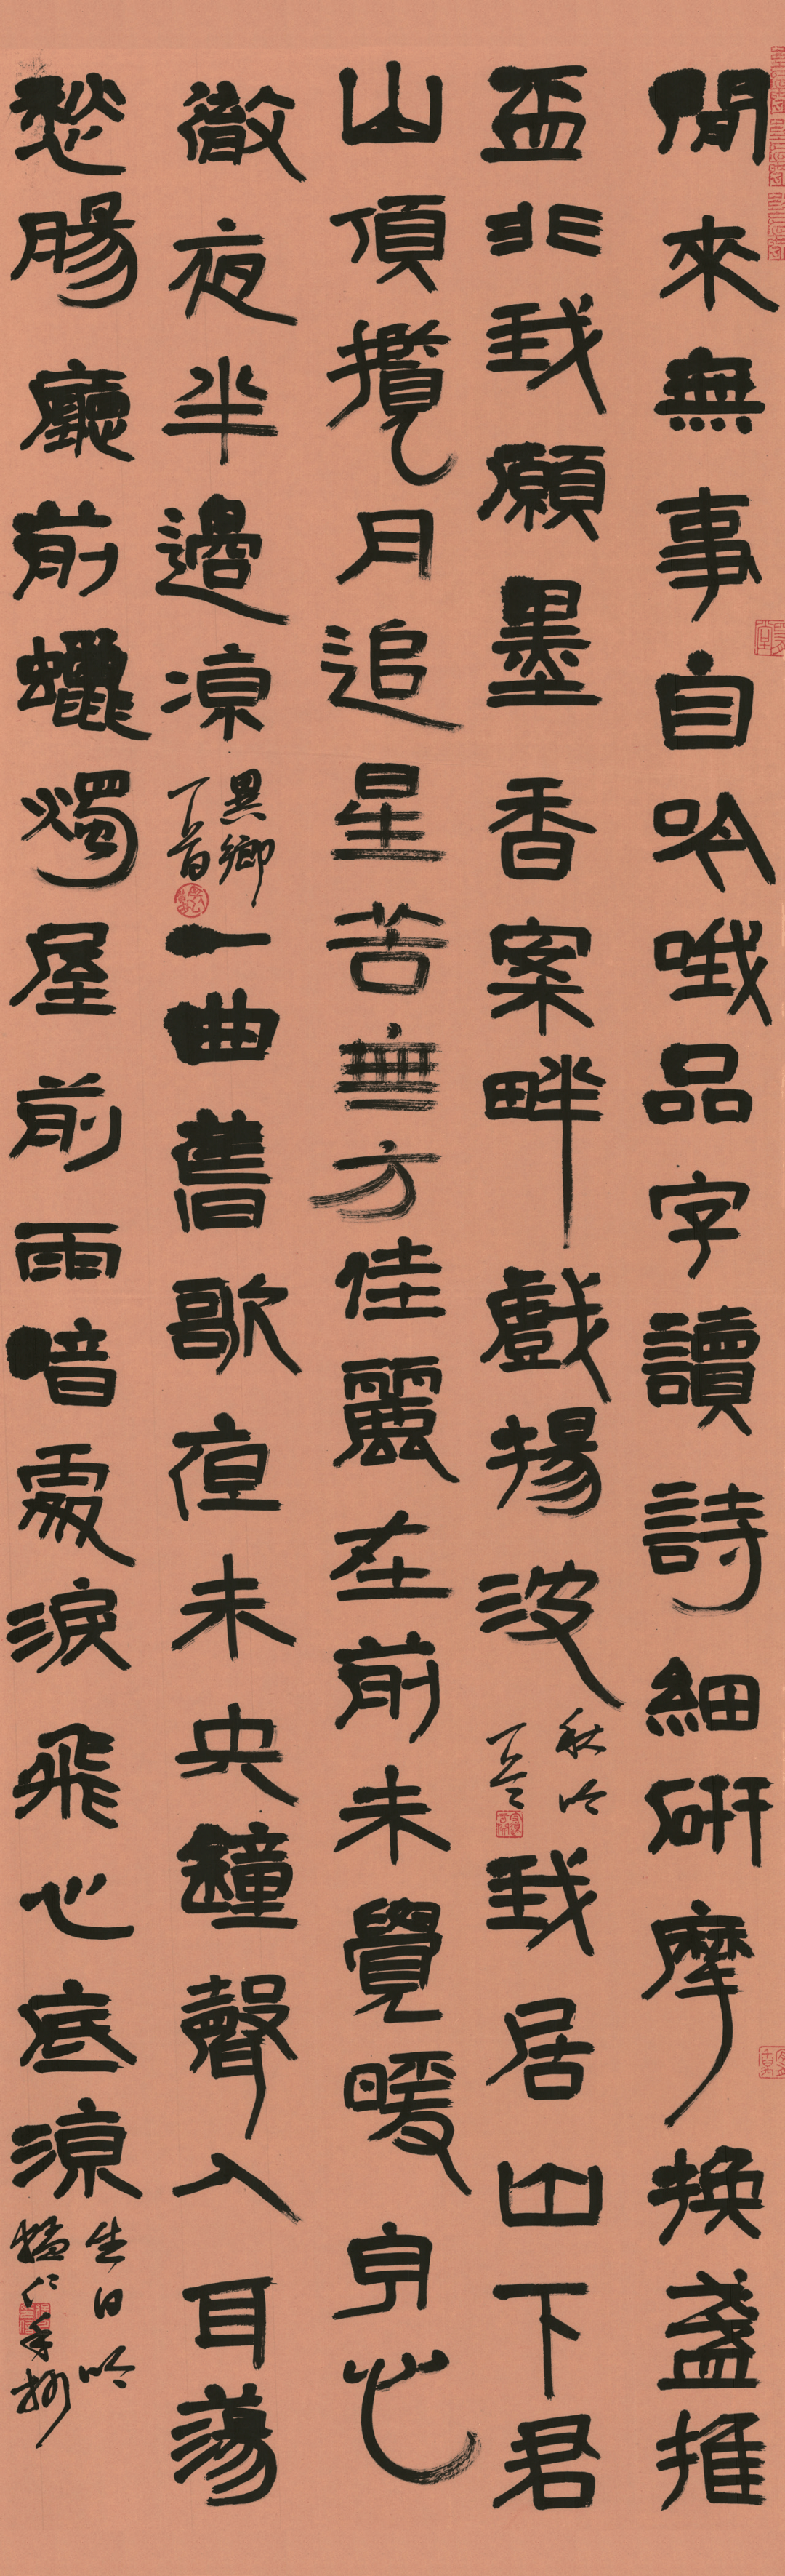 閒來無事自吟哦品字讀詩細研摩換盞推
盃非我願墨香案畔戲揚波
秋吟
我居山下君
山頂攬月追星苦無方佳麗在前未覺暖身心
徹夜半邊涼
異鄉
一曲舊歌夜未央鐘聲入耳蕩
愁腸廳前蠟燭屋前雨暗處淚飛心底涼
生日吟